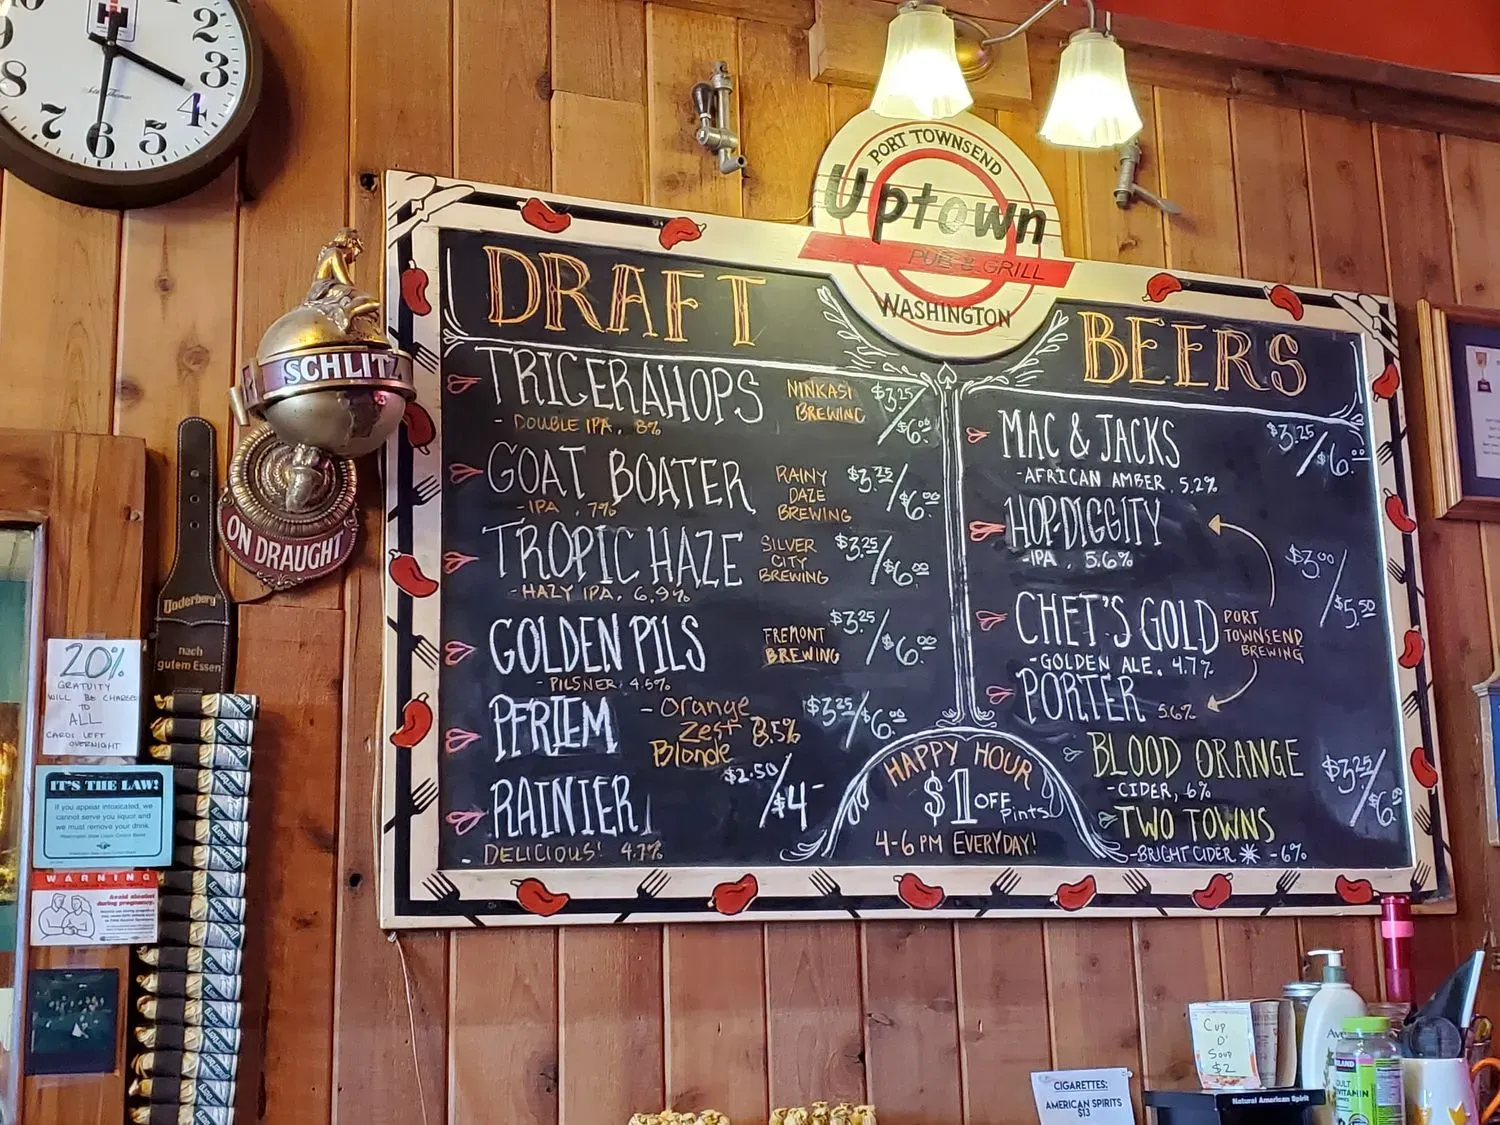 10
2
9
3
8
4
7
6
5
SCHLITZ
ON DRAUGHT
Underberg
nach
gutem Essen
20%
GRATUITY
WILL BE CHARGED
TO
ALL
CARDS LEFT
OVERNIGHT
IT'S THE LAW!
If you appear intoxicated, we
cannot serve you liquor and
we must remove your drink.
Washington State Liquor Control Board
WARNING
Avoid alcohol
during pregnancy.
PORT TOWNSEND
Uptown
PUB & GRILL
WASHINGTON
DRAFT
TRICERAHOPS
- DOUBLE IPA, 8%
NINKASI
BREWING
$3.25/$6.00
GOAT BOATER
- IPA, 7%
RAINY
DAZE
BREWING
$3.25/$6.00
TROPIC HAZE
- HAZY IPA, 6.9%
SILVER
CITY
BREWING
$3.25/$6.00
GOLDEN PILS
- PILSNER, 4.5%
FREMONT
BREWING
$3.25/$6.00
PFRIEM
- Orange
Zest
Blonde
8.5%
$3.25/$6.00
RAINIER
- DELICIOUS! 4.7%
$2.50/$4-
HAPPY HOUR
$1 OFF
Pints
4-6 PM EVERYDAY!
BEERS
MAC & JACKS
- AFRICAN AMBER, 5.2%
$3.25/$6.00
HOP-DIGGITY
- IPA, 5.6%
CHET'S GOLD
- GOLDEN ALE, 4.7%
PORTER 5.6%
PORT
TOWNSEND
BREWING
$3.00/$5.50
BLOOD ORANGE
- CIDER, 6%
TWO TOWNS
- BRIGHT CIDER - 6%
$3.25/$6.
CUP
O'
Soup
$2
CIGARETTES:
AMERICAN SPIRITS
$13
Natural American Spirit